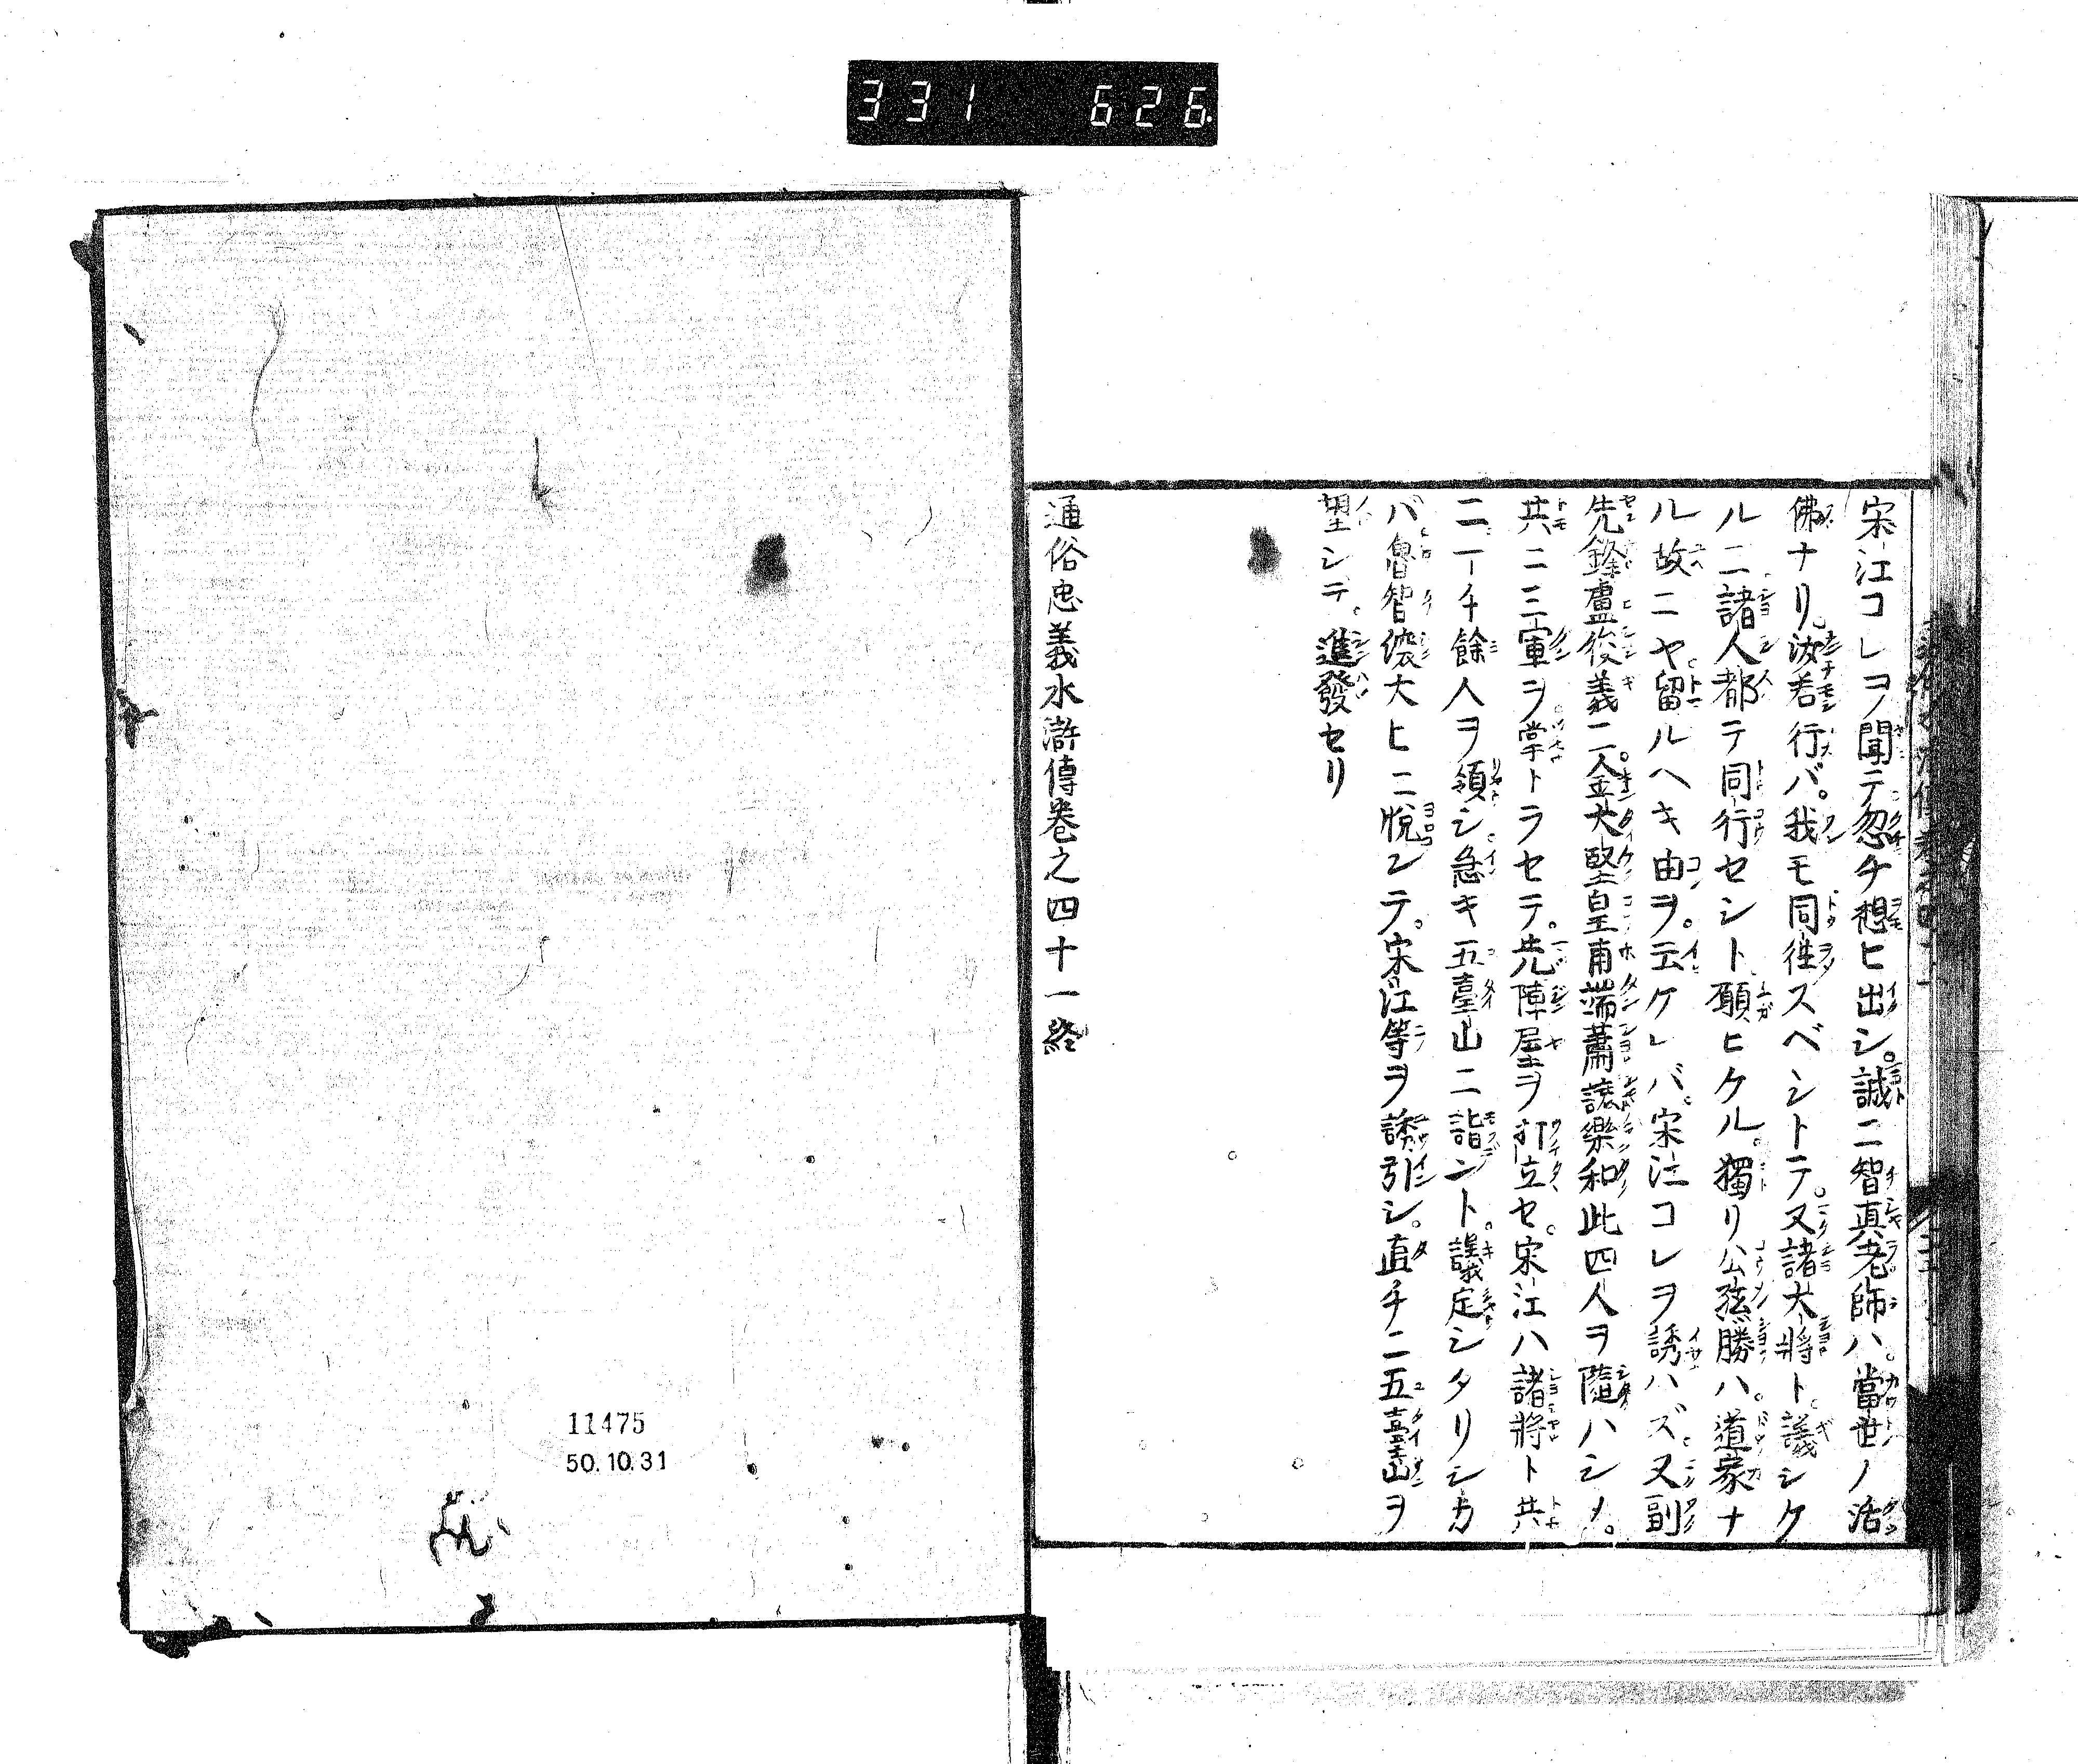 331 626
宋江コレヲ聞テ忽チ想ヒ出シ。誠ニ智真老師ハ。當世ノ活
佛ナリ。汝若行バ。我モ同往スベシトテ。又諸大將ト議シケ
ルニ諸人都テ同行セント願ヒケル。獨リ公孫勝ハ。道家ナ
ル故ニヤ。留ルヘキ由ヲ。云ケレバ。宋江コレヲ誘ハズ又副
先鋒盧俊義ニ。金大堅皇甫端蕭讓樂和此四人ヲ隨ハシメ。
共ニ三軍ヲ掌トラセテ。先陣屋ヲ打立セ。宋江ハ諸將ト共
ニ一千餘人ヲ領シ。急キ五臺山ニ詣ント。議定シタリシカ
バ魯智深大ヒニ悅ンテ。宋江等ヲ誘引シ。直チニ五臺山ヲ
望シテ。進發セリ
通俗忠義水滸傳卷之四十一終
11475
50.10.31